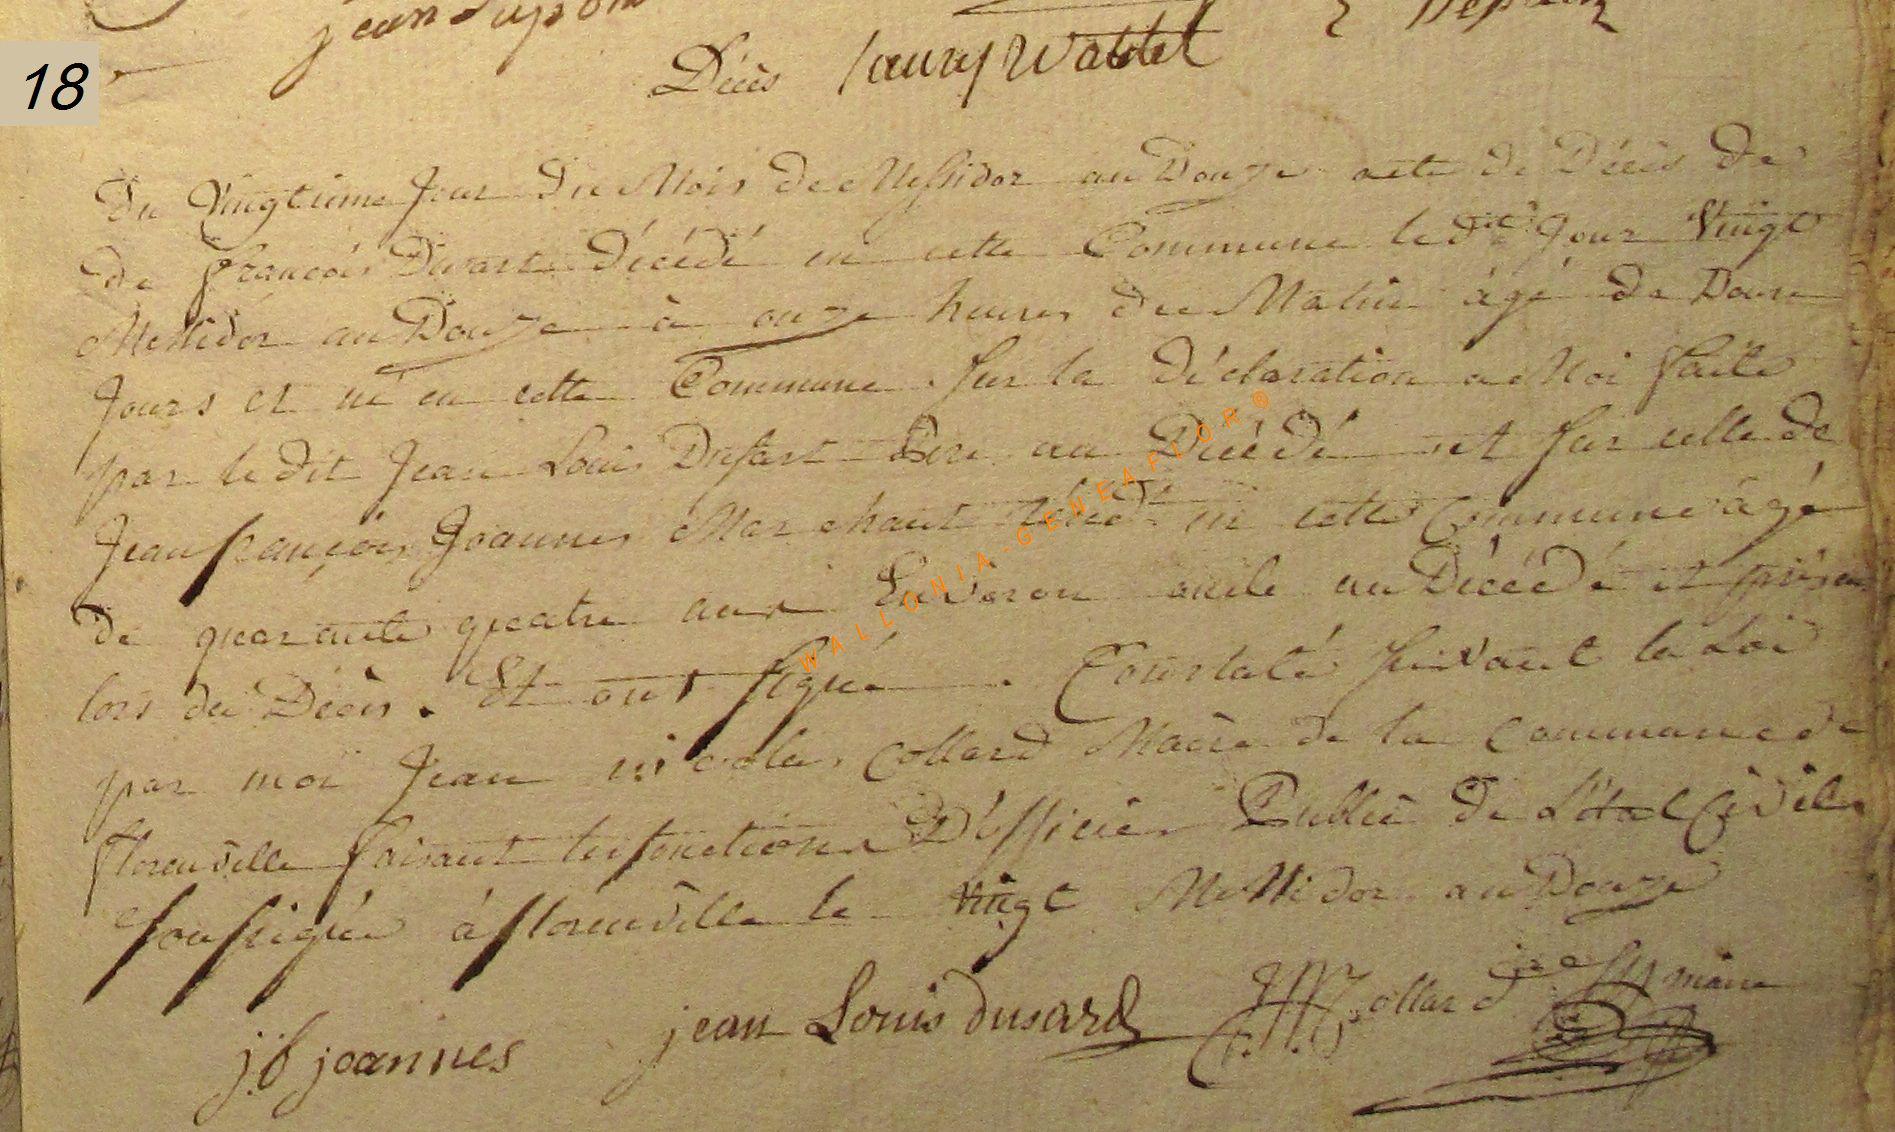 jean Dupont
18
Décès
Du Vingtième Jour Du Mois De Messidor an Douze acte de Décès De
De françois Dusart Décédé en cette Commune le dit Jour Vingt
Messidor an Douze à onze heures du Matin âgé De Douze
Jours et né en cette Commune. Sur la Déclaration a Moi faite
par le dit Jean Louis Dusart Père au Décédé et sur celle de
Jean françois Joannes Marchant en cette Commune âgé
de quarante quatre ans Environ oncle au Décédé et présent
lors du Décès. Et ont signé. Constaté suivant la Loi
par moi Jean nicolas Collard Maire de la Commune de
florenville faisant les fonctions D'officier Public De L'état Civile
soussignée à florenville le vingt Messidor an Douze
joannes
jean Louis dusard
Collard maire
WALLONIA-GENEAFLOR®